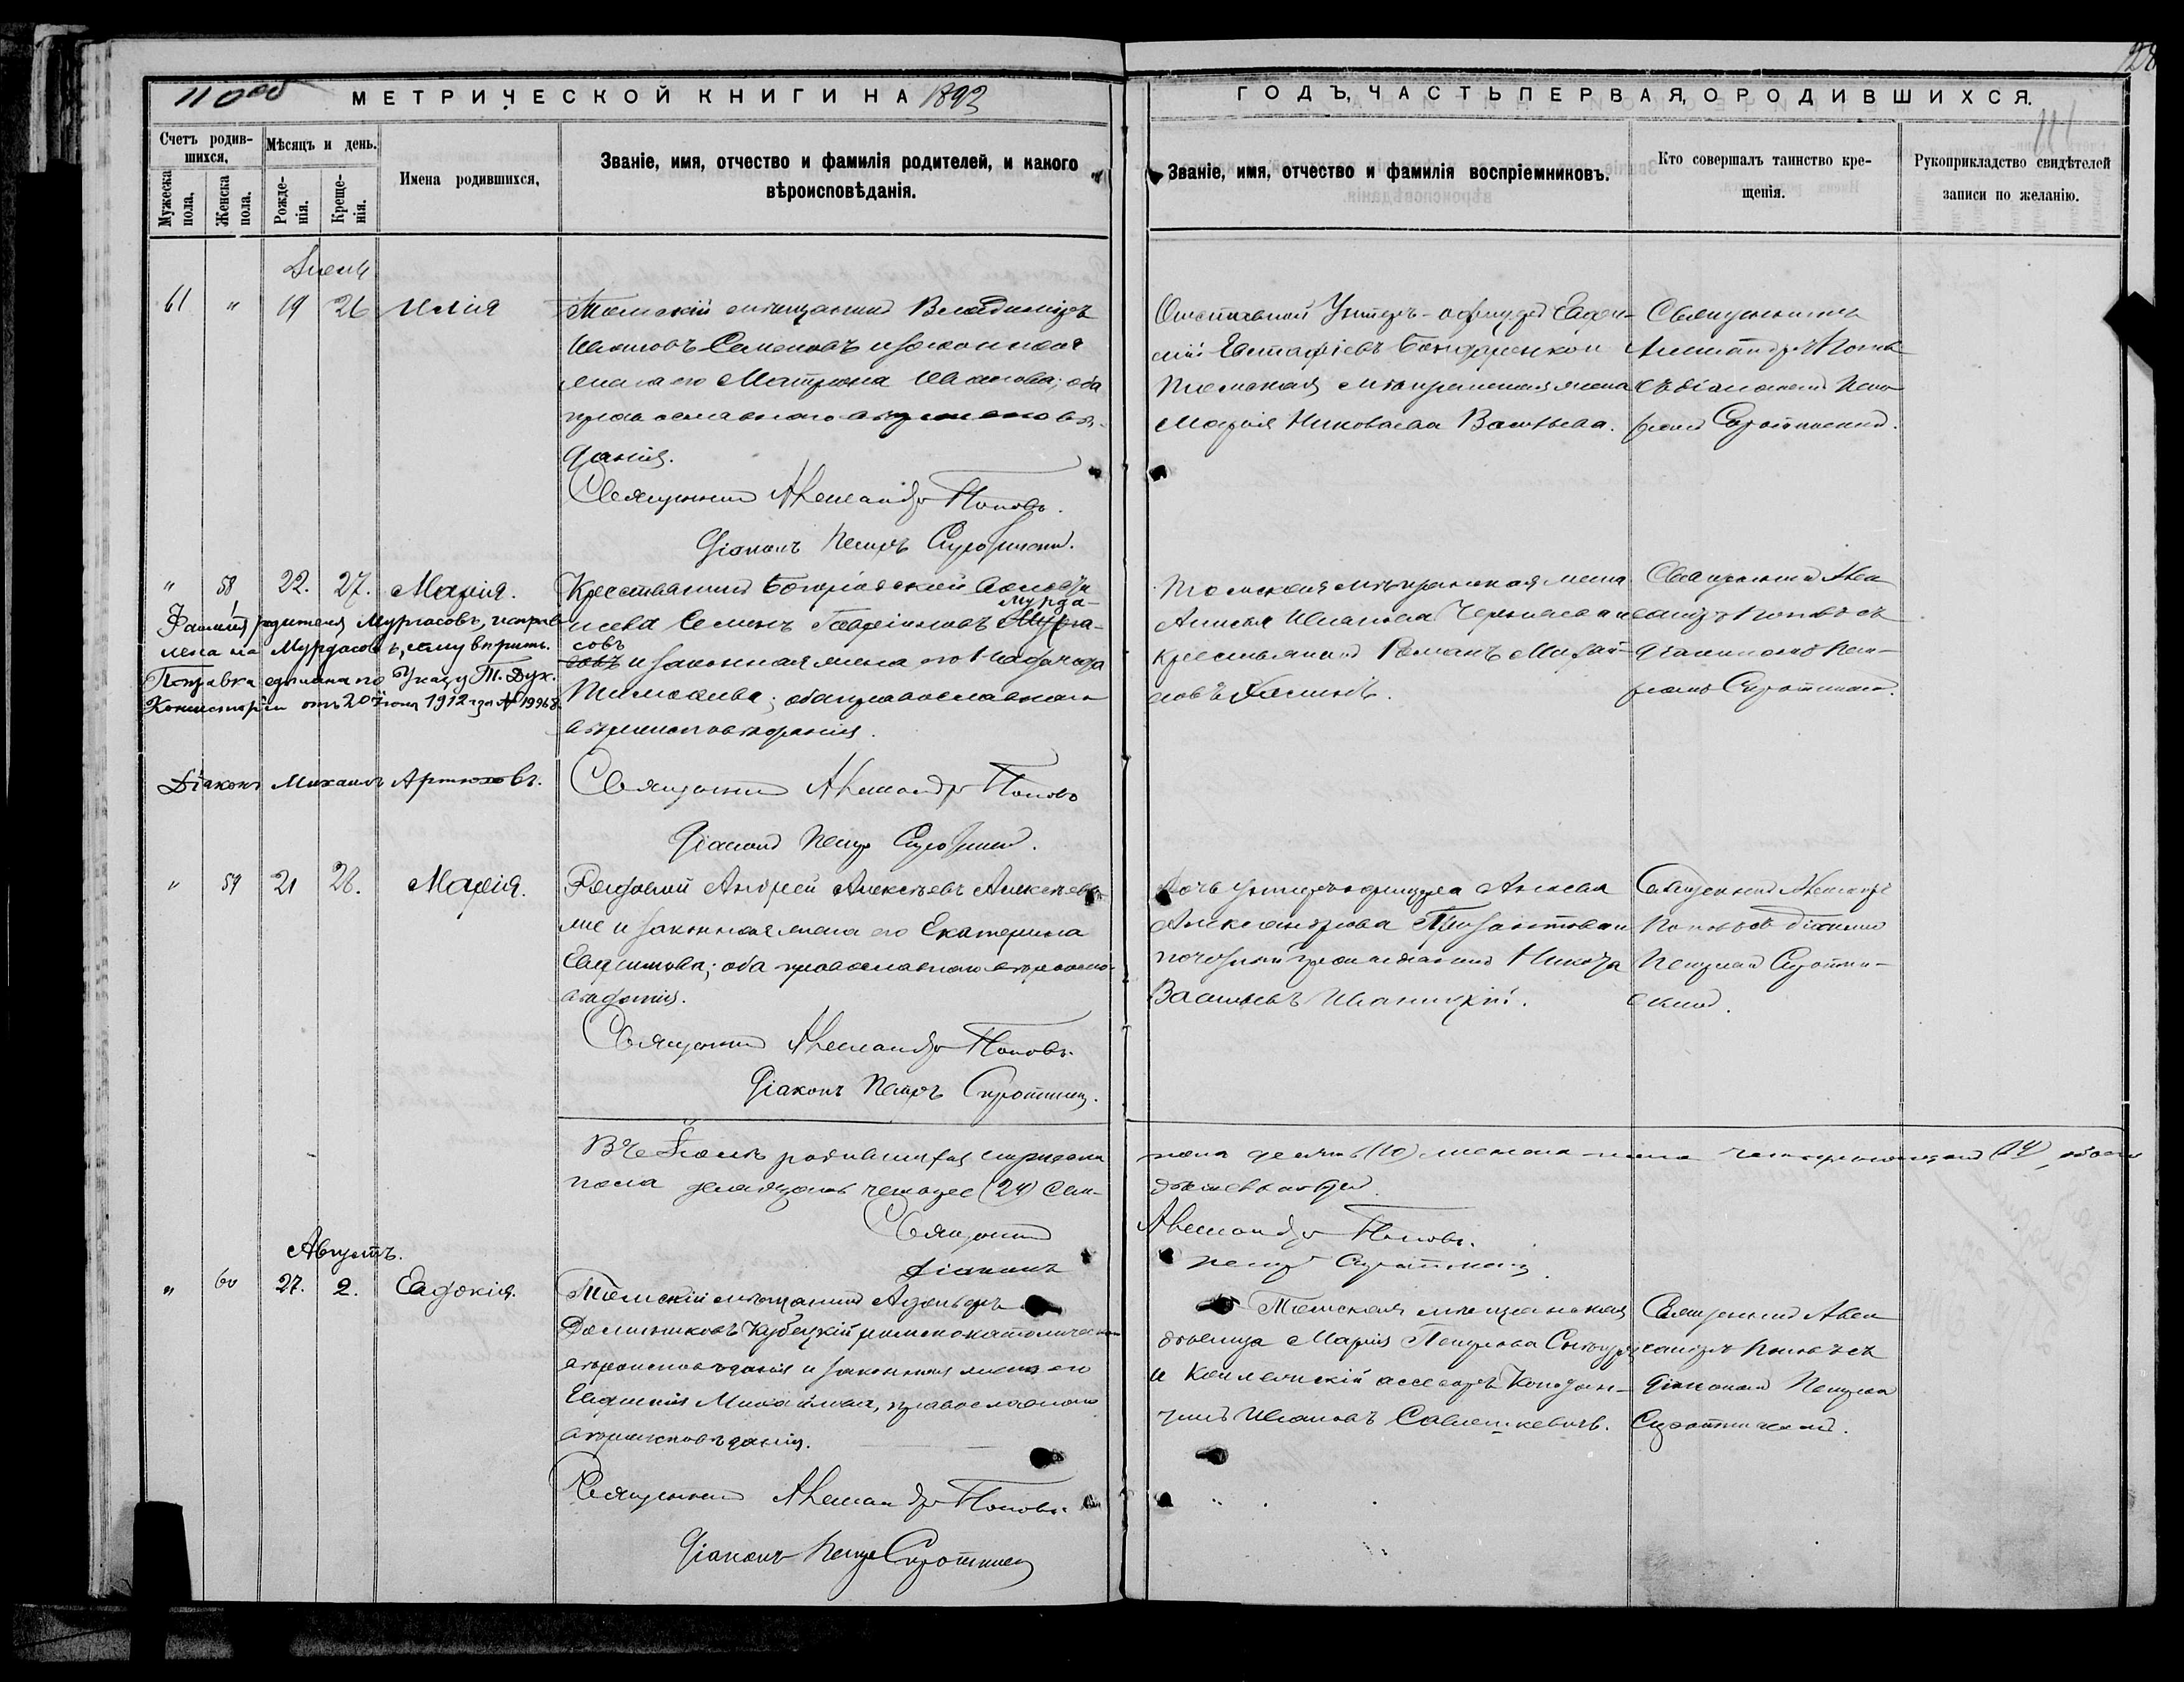 128
110об
МЕТРИЧЕСКОЙ КНИГИ НА 1893
ГОДЪ, ЧАСТЬ ПЕРВАЯ, О РОДИВШИХСЯ.
111
Счетъ родившихся,
Мужеска пола.
Женска пола.
Мѣсяцъ и день.
Рожденія.
Крещенія.
Имена родившихся,
Званіе, имя, отчество и фамилія родителей, и какого
вѣроисповѣданія.
Званіе, имя, отчество и фамилія воспріемниковъ.
Кто совершалъ таинство крещенія.
Рукоприкладство свидѣтелей
записи по желанію.
61 " 19 26 Илія
Томскій мѣщанинъ Владиміръ
Ивановъ Семеновъ и законная
жена его Матрона Иванова; оба
православнаго вѣроисповѣ-
данія.
Отставной Унтеръ-офицеръ
Евстафіевъ Бондаренко и
Томская мѣщанская жена
Марія Николаева Васильева.
Священникъ
Александръ Поповъ
съ діакономъ Пет-
ромъ Сиротинскимъ.
Священникъ Александръ Поповъ.
Діаконъ Петръ Сиротинскій.
" 58 22. 27. Марія.
Крестьянинъ Богородской волости
Семенъ Гавріиловъ Мурда-
совъ
и законная жена его Надежда
Тимофеева; оба православнаго
вѣроисповѣданія.
Фамилія родителя Мургасовъ, исправ-
лена на Мурдасовъ, чему вѣрить.
Поправка сдѣлана по Указу Т. Дух.
Консисторіи отъ 20 Іюня 1912 года № 19968.
Діаконъ Михаилъ Артюховъ.
Томская мѣщанская жена
Анисья Иванова Чернаева и
крестьянинъ Романъ
Священникъ Алек-
сандръ Поповъ съ
діакономъ Пет-
ромъ Сиротинскимъ.
Священникъ Александръ Поповъ
Діаконъ Петръ Сиротинскій.
" 59 21 28. Марія.
Рядовой Андрей Алексѣевъ
и законная жена его Екатерина
Евфимова; оба православнаго вѣроиспо-
вѣданія.
Дочь унтеръ-офицера
Александрова и
почетный гражданинъ
Васильевъ Иваницкій.
Священникъ Александръ
Поповъ съ діакономъ
Петромъ Сиротин-
скимъ.
Священникъ Александръ Поповъ.
Діаконъ Петръ Сиротинскій.
Въ Іюлѣ родившихся мужеска
пола десять (10) женска пола четырнадцать (14), обоего
пола двадцать четыре (24)
Священникъ Александръ Поповъ.
Діаконъ Петръ Сиротинскій
Августъ.
" 60 27. 2. Евдокія.
Томскій мѣщанинъ
Доминиковъ Кубецкій римско-католическаго
вѣроисповѣданія и законная жена его
Евфимія Михайлова, православнаго
вѣроисповѣданія.
Томская мѣщанская
дѣвица Марія Петрова
и Коллежскій ассесоръ
Ивановъ
Священникъ Алек-
сандръ Поповъ съ
діакономъ Петромъ
Сиротинскимъ.
Священникъ Александръ Поповъ.
Діаконъ Петръ Сиротинскій